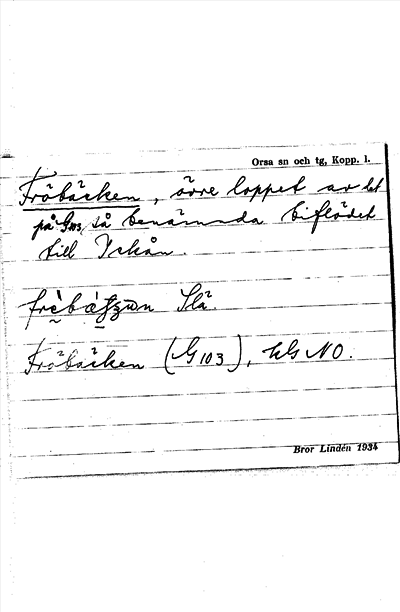 Orsa sn och tg, Kopp. l.
Fröbäcken, övre loppet av det
på G103 så benämnda biflödet
till Yckån.
Slä.
Fröbäcken (G103), NO.
Bror Lindén 1934